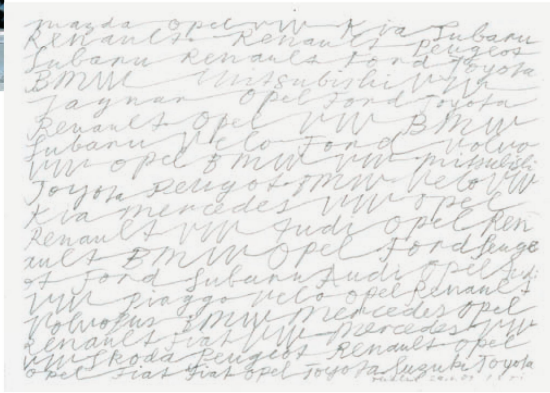 mazda opel VW Kia Subaru
Renault Renault Peugeot
Subaru Renault Ford Toyota
BMW Mitsubishi VW
Jaguar Opel Ford Toyota
Renault Opel VW BMW
Subaru Velo Ford Volvo
VW opel BMW VW mitsubishi
Toyota Peugot BMW Velo VW
Kia mercedes VW opel
Renault VW Audi opel Ren
ault BMW Opel Ford Peuge
ot Ford Subaru Audi opel
VW Piaggo Velo opel Renault
Volvo BMW Mercedes opel
Renault Fiat VW mercedes VW
VW Skoda Peugeot Renault opel
opel Fiat Fiat opel Toyota Suzuki Toyota